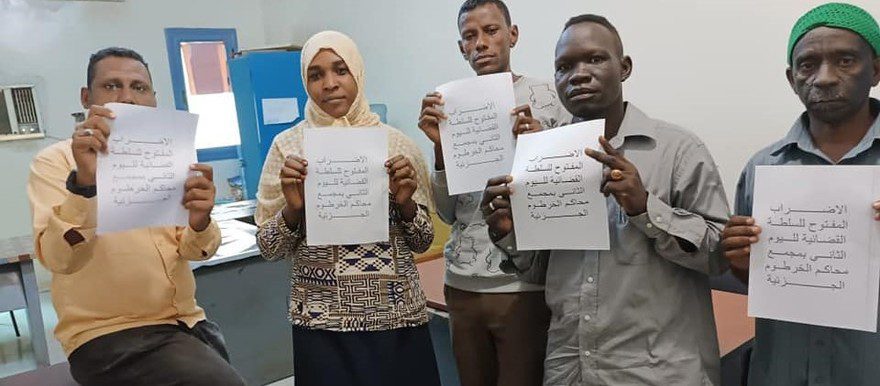 الاضراب
المفتوح للسلطة
القضائية لليوم
الثاني بمجمع
محاكم الخرطوم
الجزئية
الاضراب
المفتوح للسلطة
القضائية لليوم
الثاني بمجمع
محاكم الخرطوم
الجزئية
الاضراب
المفتوح للسلطة
القضائية لليوم
الثاني بمجمع
محاكم الخرطوم
الجزئية
الاضراب
المفتوح للسلطة
القضائية لليوم
الثاني بمجمع
محاكم الخرطوم
الجزئية
الاضراب
المفتوح للسلطة
القضائية لليوم
الثاني بمجمع
محاكم الخرطوم
الجزئية